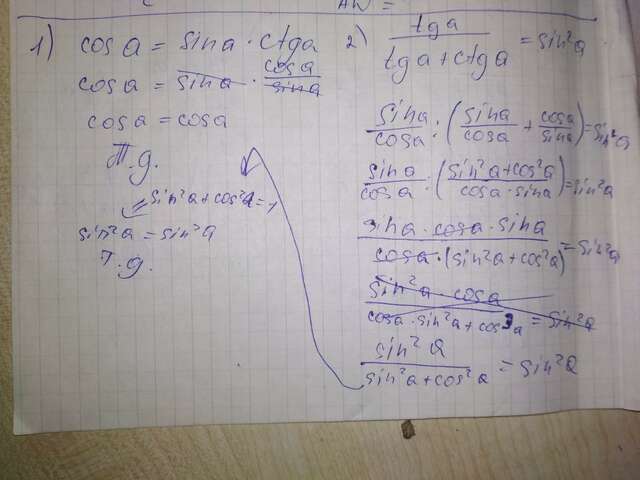 1) cos a = sin a · ctg a
cos a = sin a · cos a / sin a
cos a = cos a
Т.д.
sin²a + cos²a = 1
sin²a = sin²a
Т.д.
2) tg a / tg a + ctg a = sin²a
sin a / cos a : (sin a / cos a + cos a / sin a) = sin²a
sin a / cos a : (sin²a + cos²a / cos a · sin a) = sin²a
sin a · cos a · sin a / cos a · (sin²a + cos²a) = sin²a
sin²a · cos a / cos a · sin²a + cos³a = sin²a
sin²a / sin²a + cos²a = sin²a